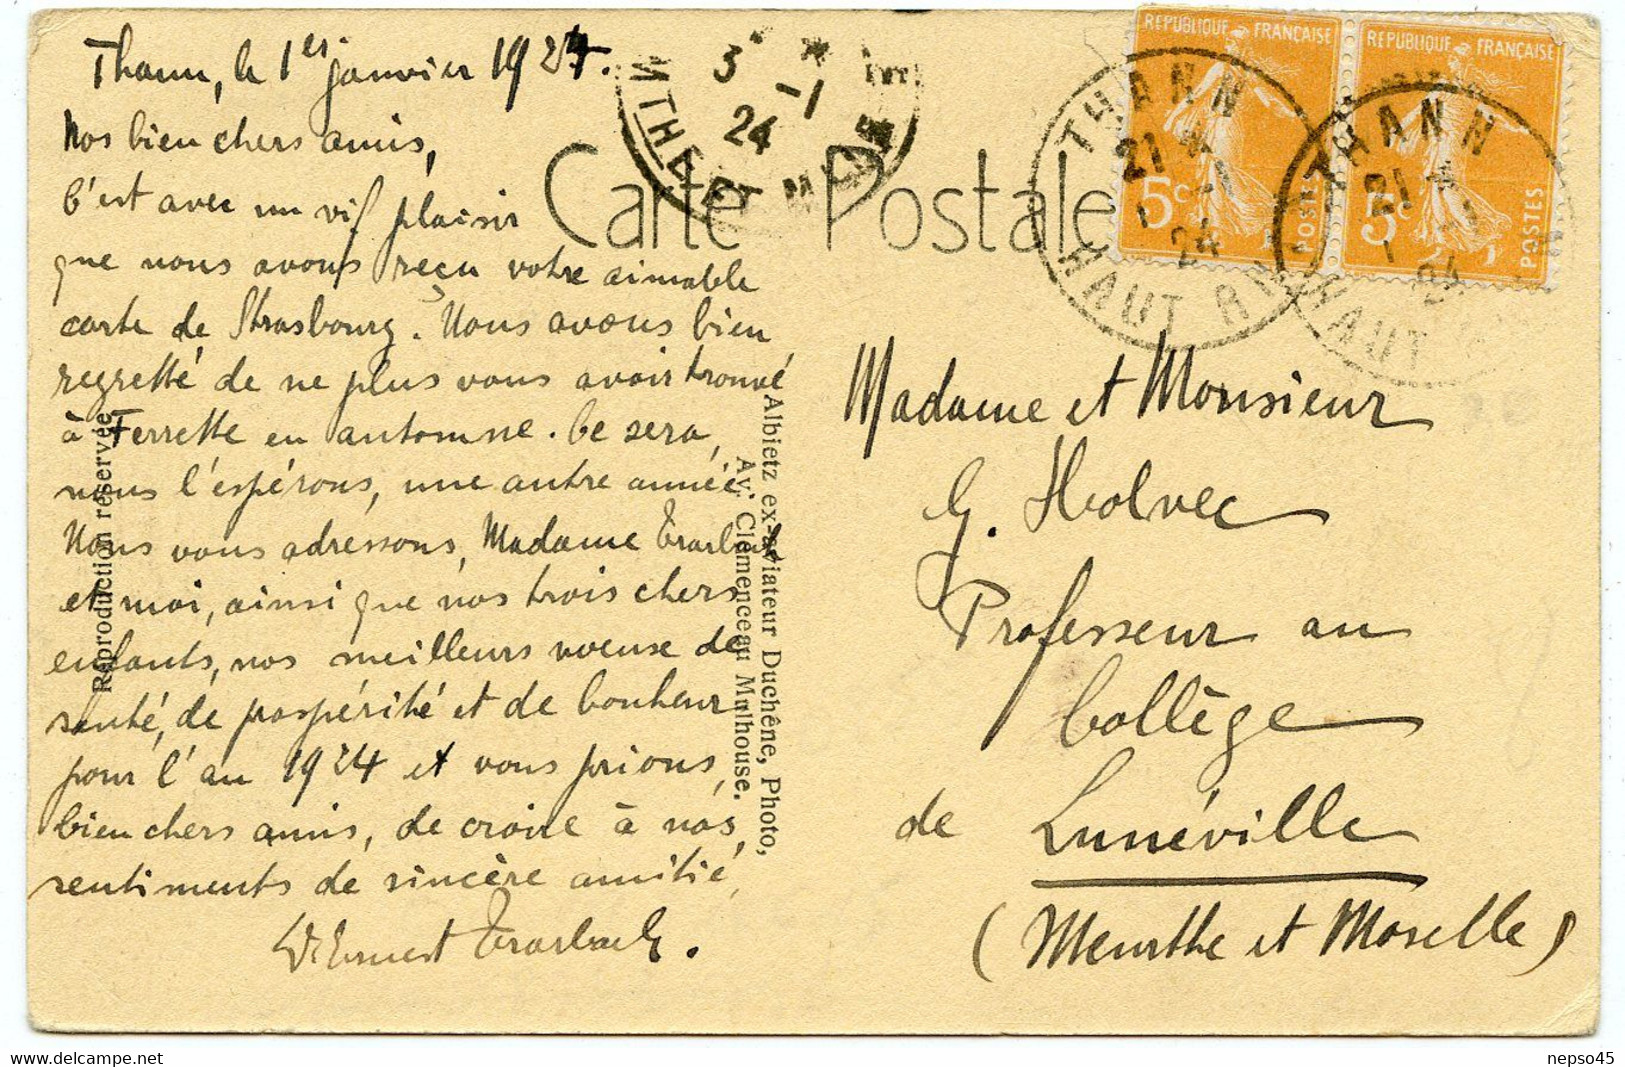 Thann, le 1er janvier 1924.
Nos bien chers amis,
C'est avec un vif plaisir
que nous avons reçu votre aimable
carte de Strasbourg. Nous avons bien
regretté de ne plus vous avoir trouvé
à Ferrette en automne. Ce sera,
nous l'espérons, une autre année.
Nous vous adressons, Madame Trarbach
et moi, ainsi que nos trois chers
enfants, nos meilleurs voeux de
santé, de prospérité et de bonheur
pour l'an 1924 et vous prions,
bien chers amis, de croire à nos
sentiments de sincère amitié,
Dr Ernest Trarbach.
Reproduction réservée
Albietz ex-aviateur Duchêne, Photo,
Av. Clémenceau Mulhouse.
Carte Postale
3 * -1
24
RÉPUBLIQUE FRANÇAISE
5c POSTES
RÉPUBLIQUE FRANÇAISE
5c POSTES
THANN
21 *
1 -1
24
HAUT RHIN
THANN
21 *
1 -1
24
HAUT
Madame et Monsieur
G. Holvec
Professeur au
Collège
de Lunéville
(Meurthe et Moselle)
www.delcampe.net
nepso45